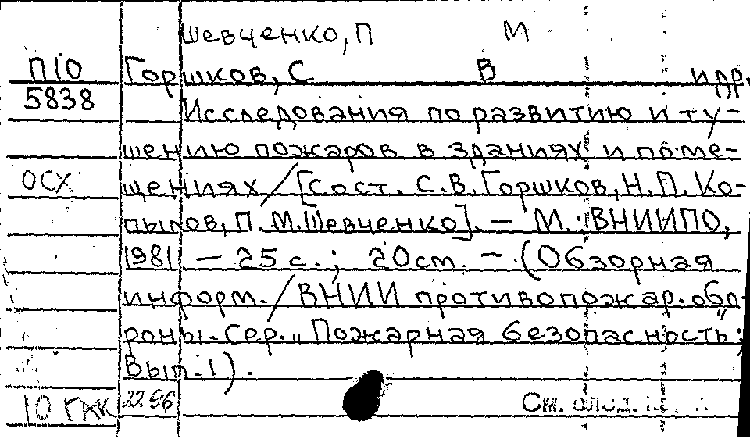 Шевченко, П М
П10 Горшков, С В и др.
5838 Исследования по развитию и ту-
шению пожаров в зданиях и поме-
ОСХ щениях / [Сост. С.В. Горшков, Н.П. Ко-
пылов, П.М. Шевченко]. — М. : ВНИИПО,
1981 — 25 с. ; 20 см. — (Обзорная
информ. / ВНИИ противопожар. обо-
роны. Сер. „Пожарная безопасность";
Вып. 1).
10 ГАК 22.96 См. след.